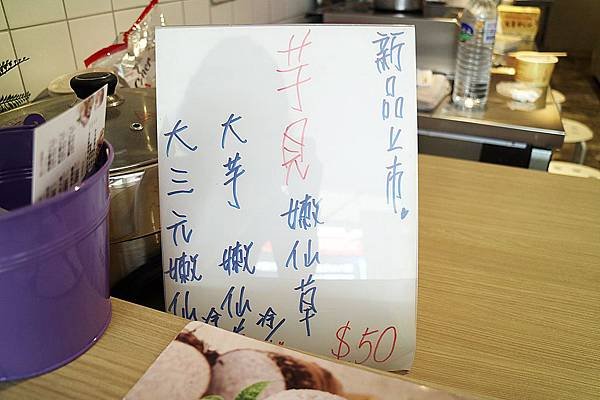 新品上市.
芋見嫩仙草
大芋 嫩仙草 冷/
大三元嫩仙 冷
$50